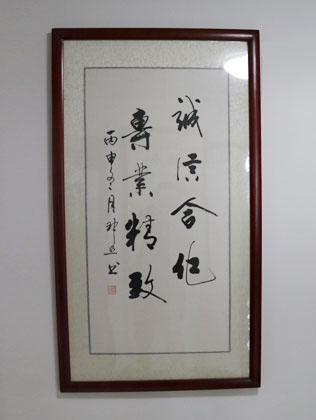 誠信合作
專業精致
丙申年二月
書